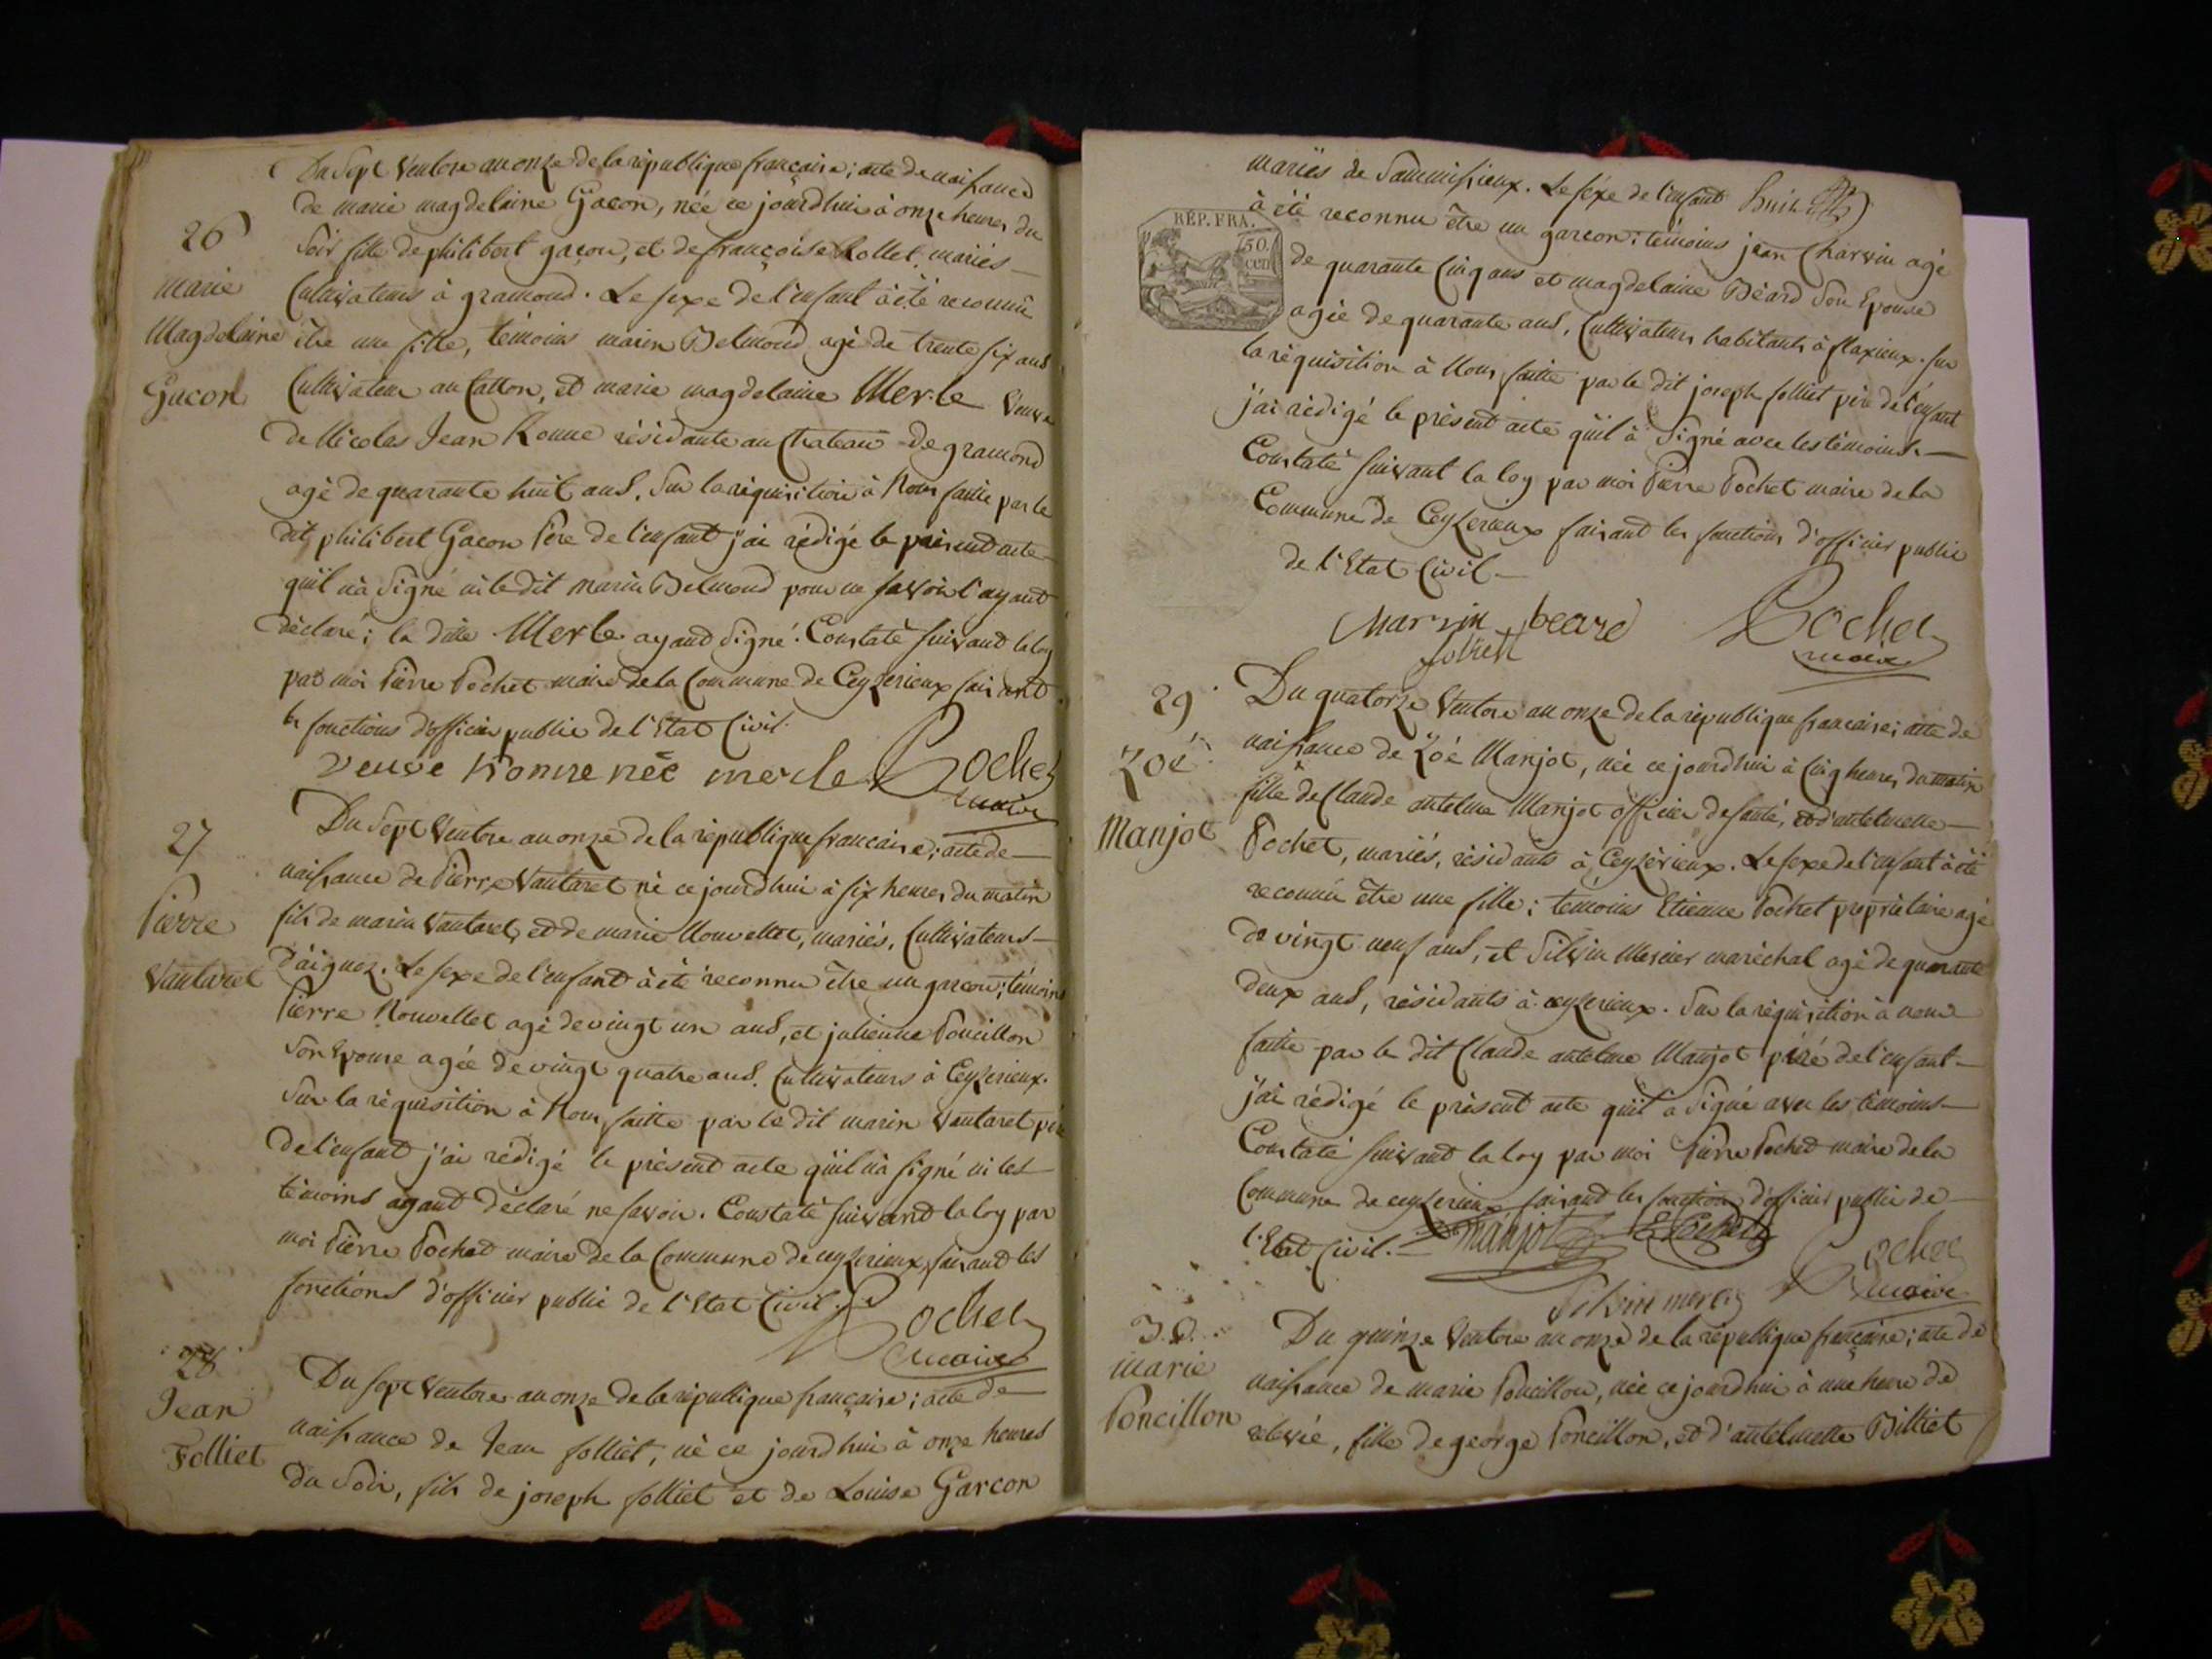 Du Sept Ventose an onze de la république française; acte de naissance
de marie magdelaine Gacon, née ce jourdhui à onze heures du
26
Soir fille de philibert gacon, et de françoise Rollet, mariés
marie
Cultivateurs à gramond. Le sexe de l'enfant à été reconnu
Magdelaine
être une fille, témoins marin Belmond agé de trente six ans
Gacon
Cultivateur au Catton, et marie magdelaine Merle Veuve
de Nicolas Jean Konne résidante au Chateau de gramond
agé de quarante huit ans. Sur la réquisition à Nous faitte par le
dit philibert Gacon Père de l'enfant j'ai rédigé le présent acte
quil n'à Signé ni le dit marin Belmond pour ne savoir l'ayant
déclaré; la ditte Merle ayand Signé. Constaté Suivant la loy
par moi Pierre Pochet maire de la Commune de Ceyzerieux faisant
les fonctions d'officier public de l'Etat Civil.
veuve Konne née merle Pochet
maire
27
Du Sept Ventose an onze de la république française; acte de
naissance de Pierre Vautaret né ce jourdhui à six heures du matin
Pierre
fils de marin Vautaret, et de marie Nouvellet, mariés, Cultivateurs
Vautaret
d'aignoz. Le sexe de l'enfant à été reconnu être un garcon; témoins
Pierre Nouvellet agé de vingt un ans, et julienne Poncillon
Son Epouse agée de vingt quatre ans. Cultivateurs à Ceyzerieux.
Sur la réquisition à Nous faitte par le dit marin Vautaret père
de l'enfant j'ai rédigé le présent acte quil n'à signé ni les
témoins ayant déclaré ne savoir. Constaté suivant la loy par
moi Pierre Pochet maire de la Commune de ceyzerieux, faisant les
fonctions d'officier public de l'Etat Civil.
Pochet
maire
28
Du sept Ventose an onze de la république française; acte de
Jean
naissance de Jean folliet, né ce jourdhui à onze heures
Folliet
du Soir, fils de joseph folliet et de Louise Garcon
mariés de Sammissieux. Le sexe de l'enfant huit
à été reconnu être un garcon; témoins jean Charvin agé
RÉP. FRA.
50 cen
de quarante Cinq ans et magdelaine Béard Son Epouse
agée de quarante ans, Cultivateurs habitants à flaxieux. Sur
la réquisition à Nous faitte par le dit joseph folliet père de l'enfant
j'ai rédigé le présent acte quil à Signé avec les témoins.
Constaté suivant la loy par moi Pierre Pochet maire de la
Commune de Ceyzerieux faisant les fonctions d'officier public
de l'Etat Civil
Charvin beard Pochet
folliet maire
29
Du quatorze Ventose an onze de la république française; acte de
Zoé
naissance de Zoé Manjot, née ce jourdhui à Cinq heures du matin
fille de Claude antelme Manjot officier de santé, et d'antelmette
Manjot
Pochet, mariés, résidants à Ceyzérieux. Le sexe de l'enfant à été
reconnu être une fille; témoins Etienne Pochet propriétaire agé
de vingt neuf ans, et Silvin Mercier maréchal agé de quarante
deux ans, résidants à ceyzerieux. Sur la réquisition à nous
faitte par le dit Claude antelme Manjot père de l'enfant
j'ai rédigé le présent acte quil à Signé avec les témoins
Constaté suivant la loy par moi Pierre Pochet maire de la
Commune de ceyzerieux faisant les fonctions d'officier public de
l'Etat Civil. manjot E Pochet
Pochet
Silvin mercier maire
30.
Du quinze Ventose an onze de la république française; acte de
marie
naissance de marie Poncillon, née ce jourdhui à une heure de
Poncillon
relevée, fille de george Poncillon, et d'antelmette Billiet